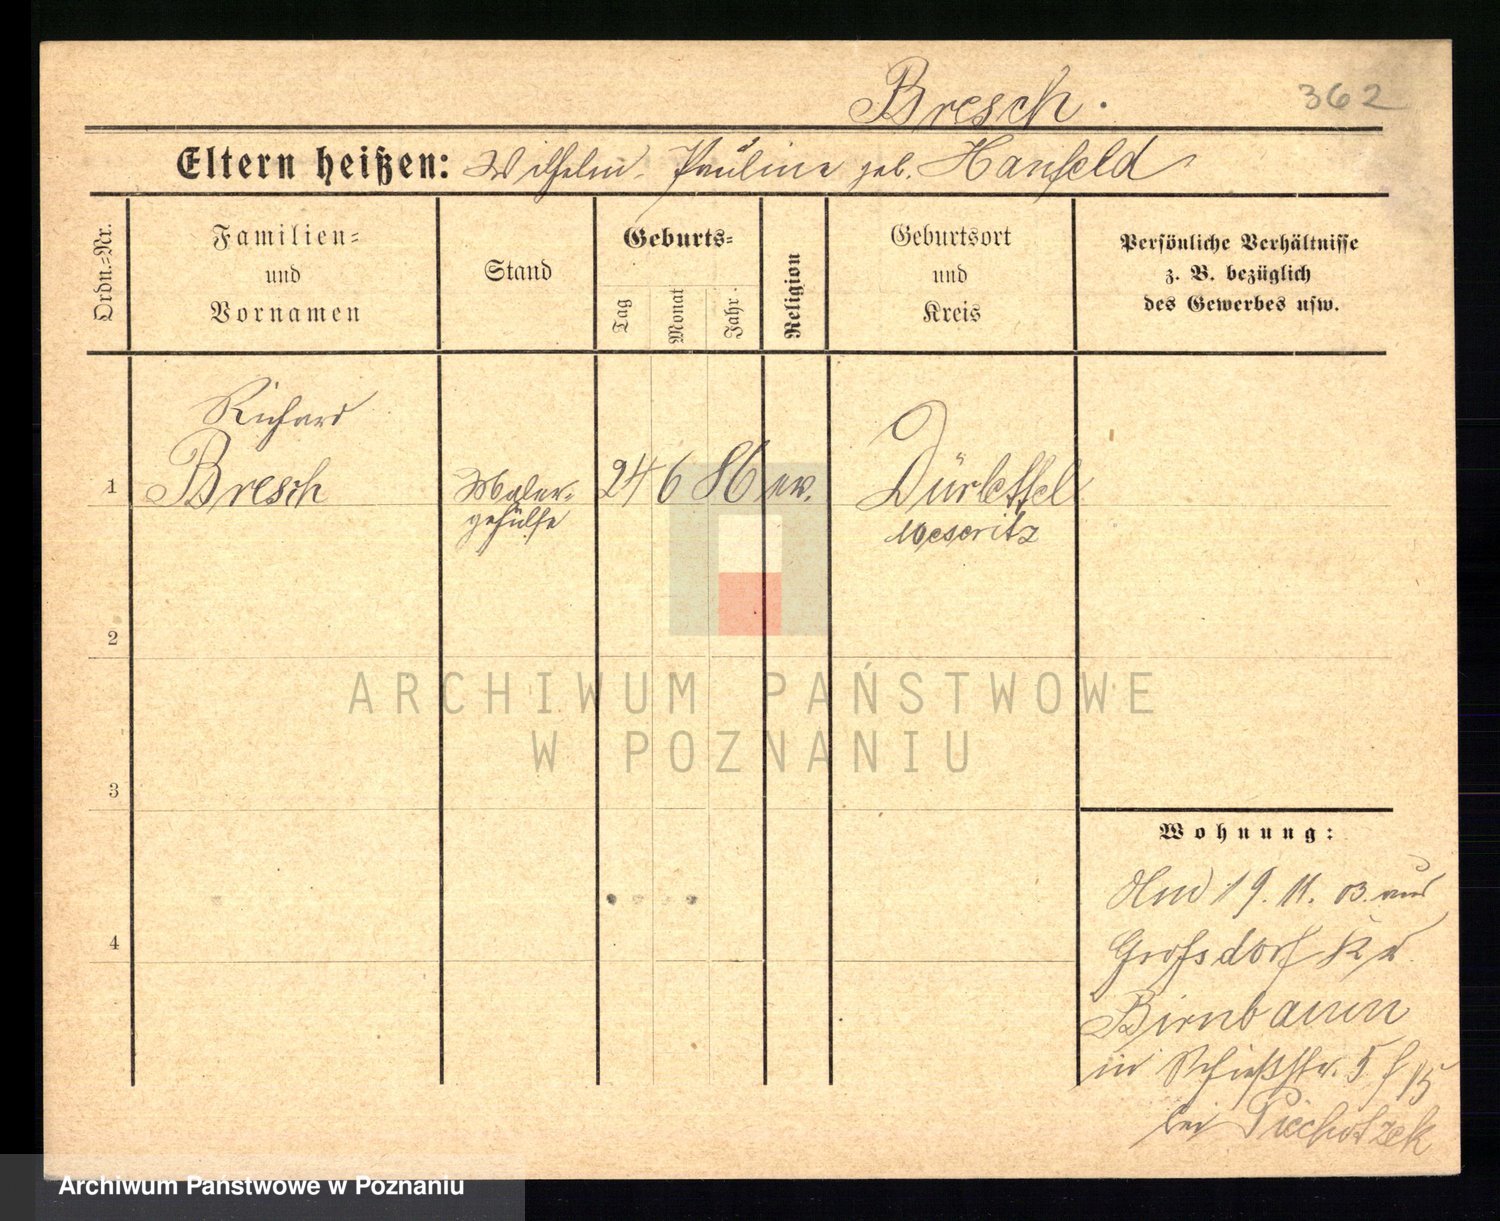 Bresch.
362
Eltern heißen: Wilhelm. Pauline geb. Hanfeld
Ordn.=Nr.
Familien=
und
Vornamen
Stand
Geburts=
Tag
Monat
Jahr.
Religion
Geburtsort
und
Kreis
Persönliche Verhältnisse
z. B. bezüglich
des Gewerbes usw.
1
Richard
Bresch
Maler-
gehülfe
24 6 86 ev.
Dürlettel
Meseritz
2
3
4
Wohnung:
Am 19. 11. 03. aus
Grofsdorf Kr.
Birnbaum
in Schießstr. 5
bei Piechotzek
ARCHIWUM PAŃSTWOWE
W POZNANIU
Archiwum Państwowe w Poznaniu